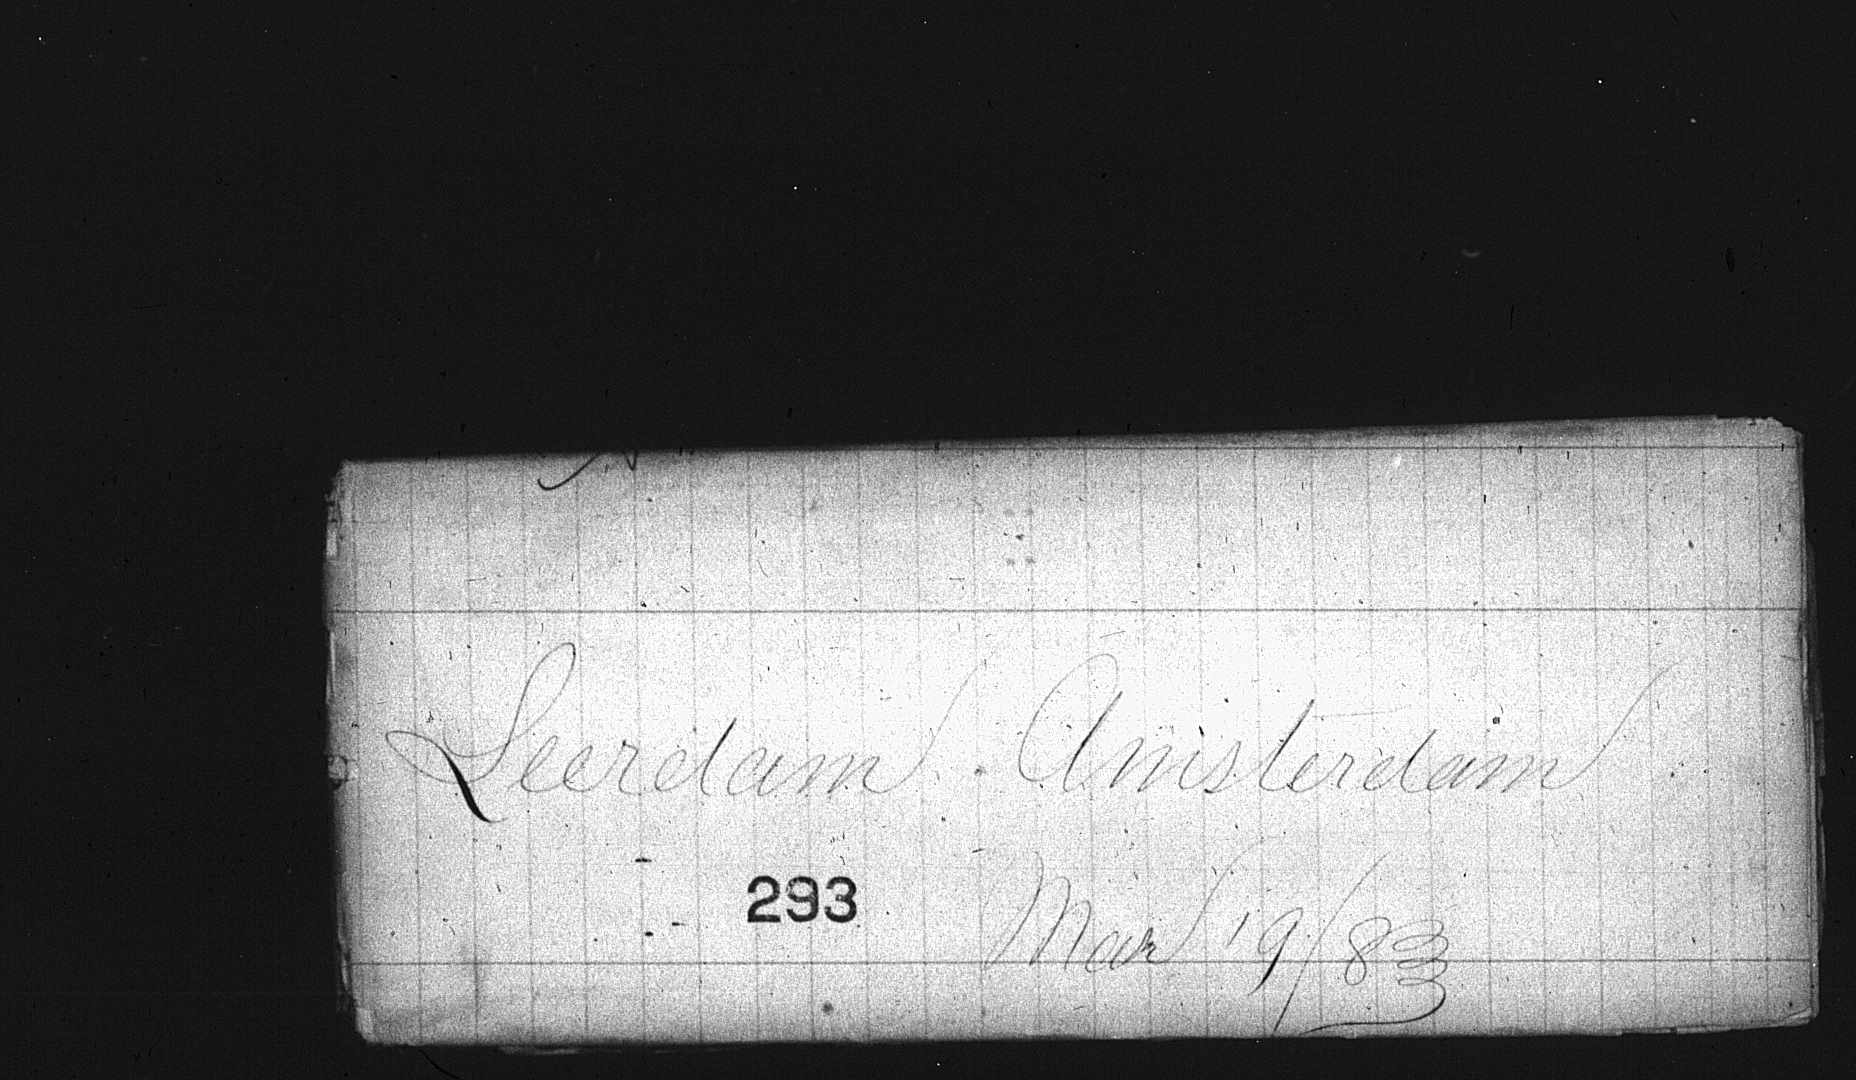 Leerdam Amsterdam
293 Mar 19/83